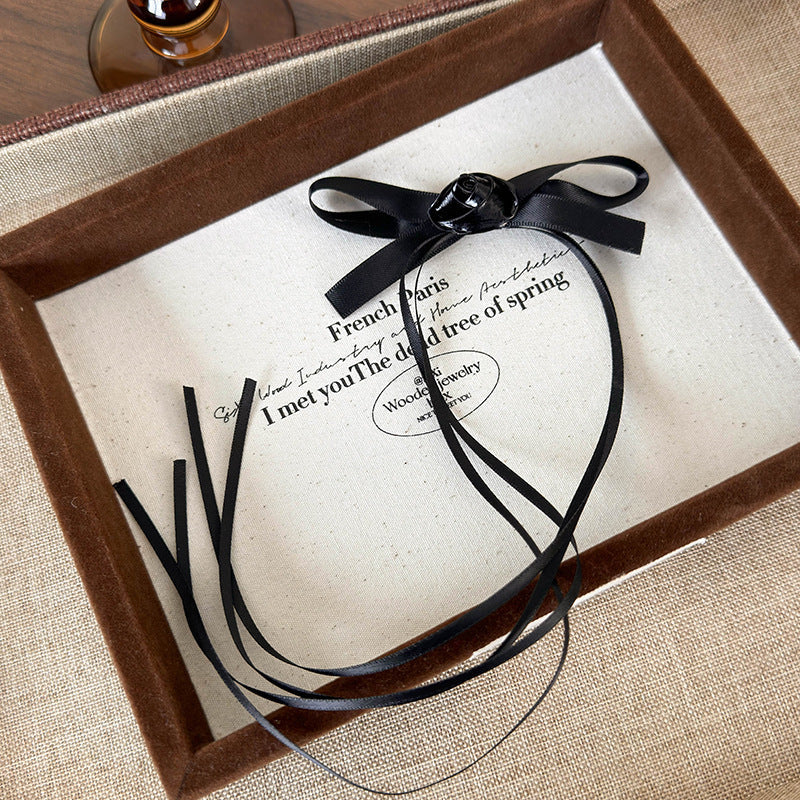 French Paris
Wood Industry and Home Aesthetics
I met youThe dead tree of spring
Wooden jewelry
NICE
YOU